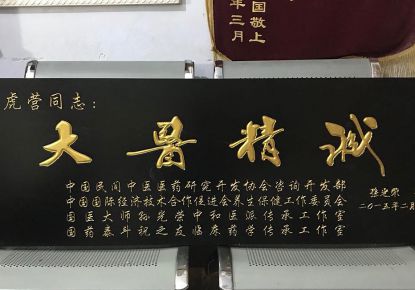 国敬上
年三月
虎营同志：
大医精诚
中国民间中医医药研究开发协会咨询开发部
中国国际经济技术合作促进会养生保健工作委员会
国医大师孙光荣中和医派传承工作室
国药泰斗祝之友临床药学传承工作室
孙光荣
二〇一五年二月